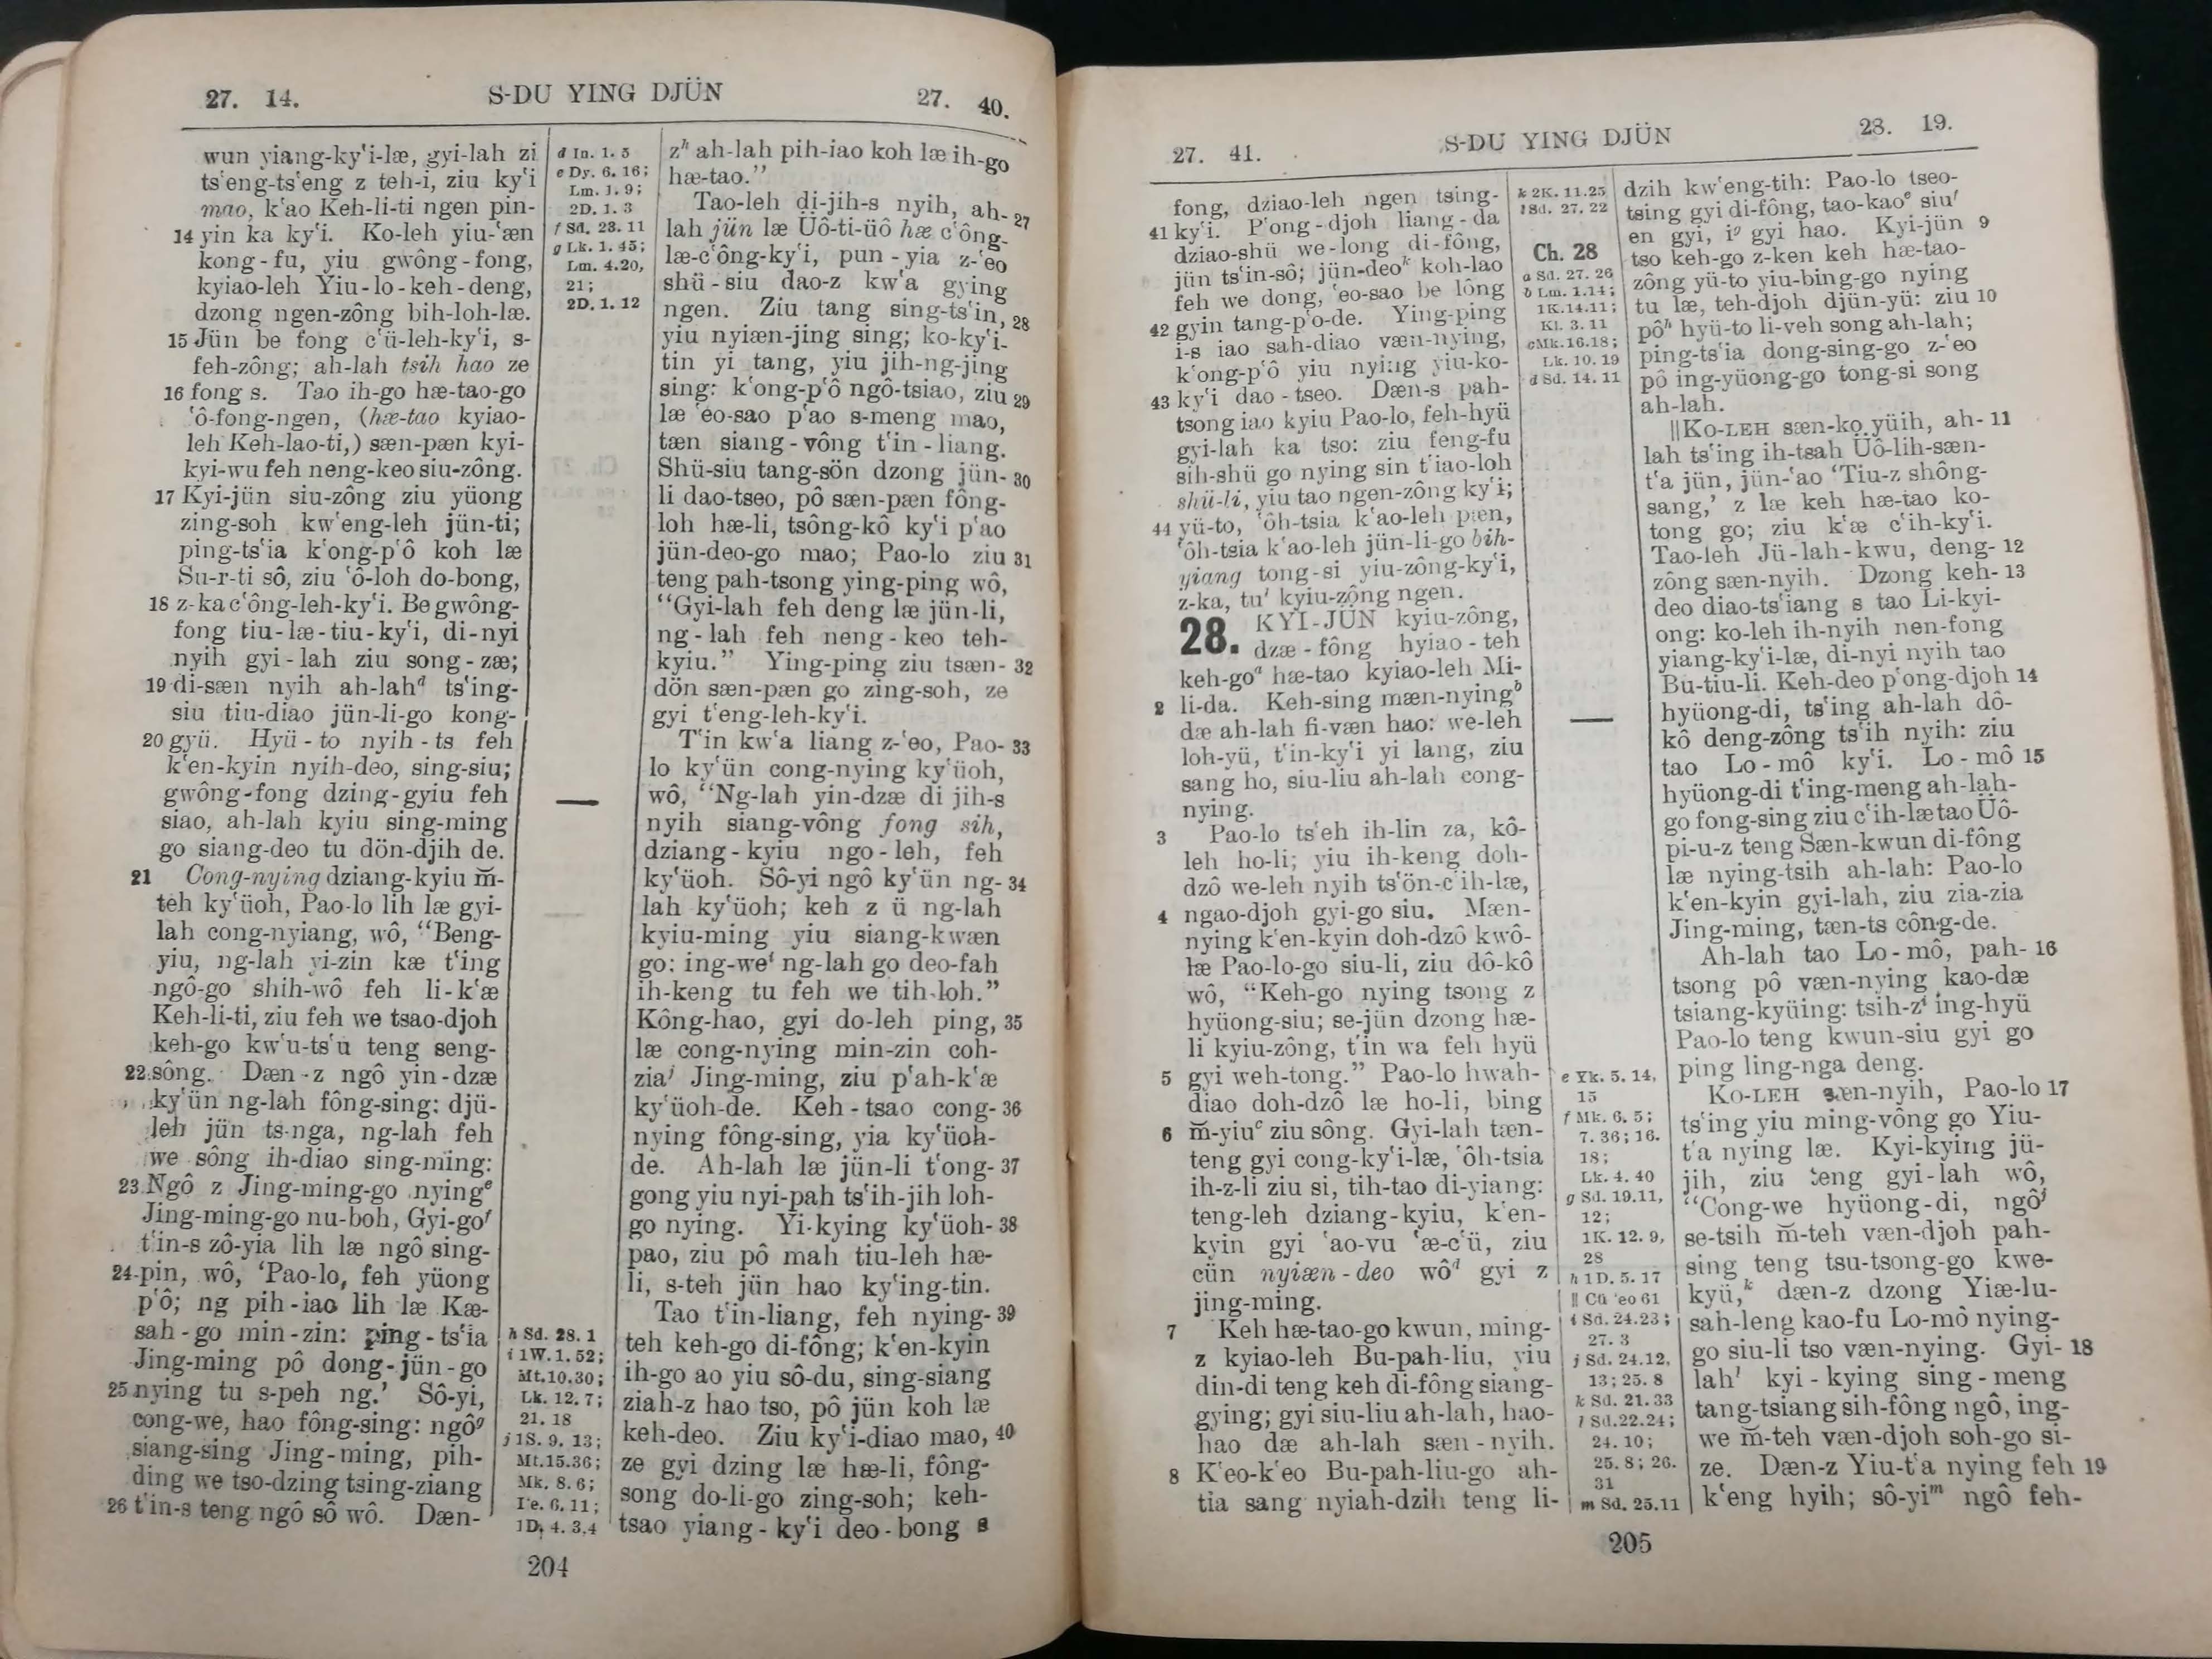 27. 14. S-DU YING DJÜN 27. 40.
wun yiang-ky‘i-læ, gyi-lah zi
ts‘eng-ts‘eng z teh-i, ziu ky‘i
mao, k‘ao Keh-li-ti ngen pin-
14 yin ka ky‘i. Ko-leh yiu-‘æn
kong-fu, yiu gwông-fong,
kyiao-leh Yiu-lo-keh-deng,
dzong ngen-zông bih-loh-læ.
15 Jün be fong c‘ü-leh-ky‘i, s-
feh-zông; ah-lah tsih hao ze
16 fong s. Tao ih-go hæ-tao-go
‘ô-fong-ngen, (hæ-tao kyiao-
leh Keh-lao-ti,) sæn-pæn kyi-
kyi-wu feh neng-keo siu-zông.
17 Kyi-jün siu-zông ziu yüong
zing-soh kw‘eng-leh jün-ti;
ping-ts‘ia k‘ong-p‘ô koh læ
Su-r-ti sô, ziu ‘ô-loh do-bong,
18 z-ka c‘ông-leh-ky‘i. Be gwông-
fong tiu-læ-tiu-ky‘i, di-nyi
nyih gyi-lah ziu song-zæ;
19 di-sæn nyih ah-lahᵈ ts‘ing-
siu tiu-diao jün-li-go kong-
20 gyü. Hyü-to nyih-ts feh
k‘en-kyin nyih-deo, sing-siu;
gwông-fong dzing-gyiu feh
siao, ah-lah kyiu sing-ming
go siang-deo tu dön-djih de.
21 Cong-nying dziang-kyiu m̆-
teh ky‘üoh, Pao-lo lih læ gyi-
lah cong-nyiang, wô, “Beng-
yiu, ng-lah yi-zin kæ t‘ing
ngô-go shih-wô feh li-k‘æ
Keh-li-ti, ziu feh we tsao-djoh
keh-go kw‘u-ts‘u teng seng-
22 sông. Dæn-z ngô yin-dzæ
ky‘ün ng-lah fông-sing: djü-
leh jün ts-nga, ng-lah feh
we sông ih-diao sing-ming:
23 Ngô z Jing-ming-go nyingᵉ
Jing-ming-go nu-boh, Gyi-goᶠ
t‘in-s zô-yia lih læ ngô sing-
24 pin, wô, ‘Pao-lo, feh yüong
p‘ô; ng pih-iao lih læ Kæ-
sah-go min-zin: ping-ts‘ia
Jing-ming pô dong-jün-go
25 nying tu s-peh ng.’ Sô-yi,
cong-we, hao fông-sing: ngôᵍ
siang-sing Jing-ming, pih-
ding we tso-dzing tsing-ziang
26 t‘in-s teng ngô sô wô. Dæn-
d In. 1. 5
e Dy. 6. 16;
Lm. 1. 9;
2D. 1. 3
f Sd. 23. 11
g Lk. 1. 45;
Lm. 4.20,
21;
2D. 1. 12
h Sd. 28. 1
i 1W. 1. 52;
Mt.10.30;
Lk. 12. 7;
21. 18
j 1S. 9. 13;
Mt.15.36;
Mk. 8. 6;
Ie. 6. 11;
1D. 4. 3,4
zʰ ah-lah pih-iao koh læ ih-go
hæ-tao.”
Tao-leh di-jih-s nyih, ah- 27
lah jün læ Üô-ti-üô hæ c‘ông-
læ-c‘ông-ky‘i, pun-yia z-‘eo
shü-siu dao-z kw‘a gying
ngen. Ziu tang sing-ts‘in, 28
yiu nyiæn-jing sing; ko-ky‘i-
tin yi tang, yiu jih-ng-jing
sing: k‘ong-p‘ô ngô-tsiao, ziu 29
læ ‘eo-sao p‘ao s-meng mao,
tæn siang-vông t‘in-liang.
Shü-siu tang-sön dzong jün- 30
li dao-tseo, pô sæn-pæn fông-
loh hæ-li, tsông-kô ky‘i p‘ao
jün-deo-go mao; Pao-lo ziu 31
teng pah-tsong ying-ping wô,
“Gyi-lah feh deng læ jün-li,
ng-lah feh neng-keo teh-
kyiu.” Ying-ping ziu tsæn- 32
dön sæn-pæn go zing-soh, ze
gyi t‘eng-leh-ky‘i.
T‘in kw‘a liang z-‘eo, Pao- 33
lo ky‘ün cong-nying ky‘üoh,
wô, “Ng-lah yin-dzæ di jih-s
nyih siang-vông fong sih,
dziang-kyiu ngo-leh, feh
ky‘üoh. Sô-yi ngô ky‘ün ng- 34
lah ky‘üoh; keh z ü ng-lah
kyiu-ming yiu siang-kwæn
go: ing-weⁱ ng-lah go deo-fah
ih-keng tu feh we tih-loh.”
Kông-hao, gyi do-leh ping, 35
læ cong-nying min-zin coh-
ziaʲ Jing-ming, ziu p‘ah-k‘æ
ky‘üoh-de. Keh-tsao cong- 36
nying fông-sing, yia ky‘üoh-
de. Ah-lah læ jün-li t‘ong- 37
gong yiu nyi-pah ts‘ih-jih loh-
go nying. Yi-kying ky‘üoh- 38
pao, ziu pô mah tiu-leh hæ-
li, s-teh jün hao ky‘ing-tin.
Tao t‘in-liang, feh nying- 39
teh keh-go di-fông; k‘en-kyin
ih-go ao yiu sô-du, sing-siang
ziah-z hao tso, pô jün koh læ
keh-deo. Ziu ky‘i-diao mao, 40
ze gyi dzing læ hæ-li, fông-
song do-li-go zing-soh; keh-
tsao yiang-ky‘i deo-bong s
204
27. 41. S-DU YING DJÜN 28. 19.
fong, dziao-leh ngen tsing-
41 ky‘i. P‘ong-djoh liang-da
dziao-shü we-long di-fông,
jün ts‘in-sô; jün-deoᵏ koh-lao
feh we dong, ‘eo-sao be lông
42 gyin tang-p‘o-de. Ying-ping
i-s iao sah-diao væn-nying,
k‘ong-p‘ô yiu nying yiu-ko-
43 ky‘i dao-tseo. Dæn-s pah-
tsong iao kyiu Pao-lo, feh-hyü
gyi-lah ka tso: ziu feng-fu
sih-shü go nying sin t‘iao-loh
shü-li, yiu tao ngen-zông ky‘i;
44 yü-to, ‘ôh-tsia k‘ao-leh pæn,
‘ôh-tsia k‘ao-leh jün-li-go bih-
yiang tong-si yiu-zông-ky‘i,
z-ka, tuˡ kyiu-zông ngen.
28. KYI-JÜN kyiu-zông,
dzæ-fông hyiao-teh
keh-goᵃ hæ-tao kyiao-leh Mi-
2 li-da. Keh-sing mæn-nyingᵇ
dæ ah-lah fi-væn hao: we-leh
loh-yü, t‘in-ky‘i yi lang, ziu
sang ho, siu-liu ah-lah cong-
nying.
3 Pao-lo ts‘eh ih-lin za, kô-
leh ho-li; yiu ih-keng doh-
dzô we-leh nyih ts‘ön-c‘ih-læ,
4 ngao-djoh gyi-go siu. Mæn-
nying k‘en-kyin doh-dzô kwô-
læ Pao-lo-go siu-li, ziu dô-kô
wô, “Keh-go nying tsong z
hyüong-siu; se-jün dzong hæ-
li kyiu-zông, t‘in wa feh hyü
5 gyi weh-tong.” Pao-lo hwah-
diao doh-dzô læ ho-li, bing
6 m̆-yiuᶜ ziu sông. Gyi-lah tæn-
teng gyi cong-ky‘i-læ, ‘ôh-tsia
ih-z-li ziu si, tih-tao di-yiang:
teng-leh dziang-kyiu, k‘en-
kyin gyi ‘ao-vu ‘æ-c‘ü, ziu
cün nyiæn-deo wôᵈ gyi z
jing-ming.
7 Keh hæ-tao-go kwun, ming-
z kyiao-leh Bu-pah-liu, yiu
din-di teng keh di-fông siang-
gying; gyi siu-liu ah-lah, hao-
hao dæ ah-lah sæn-nyih.
8 K‘eo-k‘eo Bu-pah-liu-go ah-
tia sang nyiah-dzih teng li-
k 2K. 11.25
l Sd. 27. 22
Ch. 28
a Sd. 27. 26
b Lm. 1.14;
1K.14.11;
Kl. 3. 11
cMk.16.18;
Lk. 10. 19
d Sd. 14. 11
e Yk. 5. 14,
15
f Mk. 6. 5;
7. 36; 16.
18;
Lk. 4. 40
g Sd. 19.11,
12;
1K. 12. 9,
28
h 1D. 5. 17
‖ Cü ‘eo 61
i Sd. 24.23;
27. 3
j Sd. 24.12,
13; 25. 8
k Sd. 21. 33
l Sd.22.24;
24. 10;
25. 8; 26.
31
m Sd. 25.11
dzih kw‘eng-tih: Pao-lo tseo-
tsing gyi di-fông, tao-kaoᵉ siuᶠ
en gyi, iᵍ gyi hao. Kyi-jün 9
tso keh-go z-ken keh hæ-tao-
zông yü-to yiu-bing-go nying
tu læ, teh-djoh djün-yü: ziu 10
pôʰ hyü-to li-veh song ah-lah;
ping-ts‘ia dong-sing-go z-‘eo
pô ing-yüong-go tong-si song
ah-lah.
‖KO-LEH sæn-ko yüih, ah- 11
lah ts‘ing ih-tsah Üô-lih-sæn-
t‘a jün, jün-‘ao ‘Tiu-z shông-
sang,’ z læ keh hæ-tao ko-
tong go; ziu k‘æ c‘ih-ky‘i.
Tao-leh Jü-lah-kwu, deng- 12
zông sæn-nyih. Dzong keh- 13
deo diao-ts‘iang s tao Li-kyi-
ong: ko-leh ih-nyih nen-fong
yiang-ky‘i-læ, di-nyi nyih tao
Bu-tiu-li. Keh-deo p‘ong-djoh 14
hyüong-di, ts‘ing ah-lah dô-
kô deng-zông ts‘ih nyih: ziu
tao Lo-mô ky‘i. Lo-mô 15
hyüong-di t‘ing-meng ah-lah-
go fong-sing ziu c‘ih-læ tao Üô-
pi-u-z teng Sæn-kwun di-fông
læ nying-tsih ah-lah: Pao-lo
k‘en-kyin gyi-lah, ziu zia-zia
Jing-ming, tæn-ts công-de.
Ah-lah tao Lo-mô, pah- 16
tsong pô væn-nying kao-dæ
tsiang-kyüing: tsih-zⁱ ing-hyü
Pao-lo teng kwun-siu gyi go
ping ling-nga deng.
KO-LEH sæn-nyih, Pao-lo 17
ts‘ing yiu ming-vông go Yiu-
t‘a nying læ. Kyi-kying jü-
jih, ziu teng gyi-lah wô,
“Cong-we hyüong-di, ngôʲ
se-tsih m̆-teh væn-djoh pah-
sing teng tsu-tsong-go kwe-
kyü,ᵏ dæn-z dzong Yiæ-lu-
sah-leng kao-fu Lo-mô nying-
go siu-li tso væn-nying. Gyi- 18
lahˡ kyi-kying sing-meng
tang-tsiang sih-fông ngô, ing-
we m̆-teh væn-djoh soh-go si-
ze. Dæn-z Yiu-t‘a nying feh 19
k‘eng hyih; sô-yiᵐ ngô feh-
205